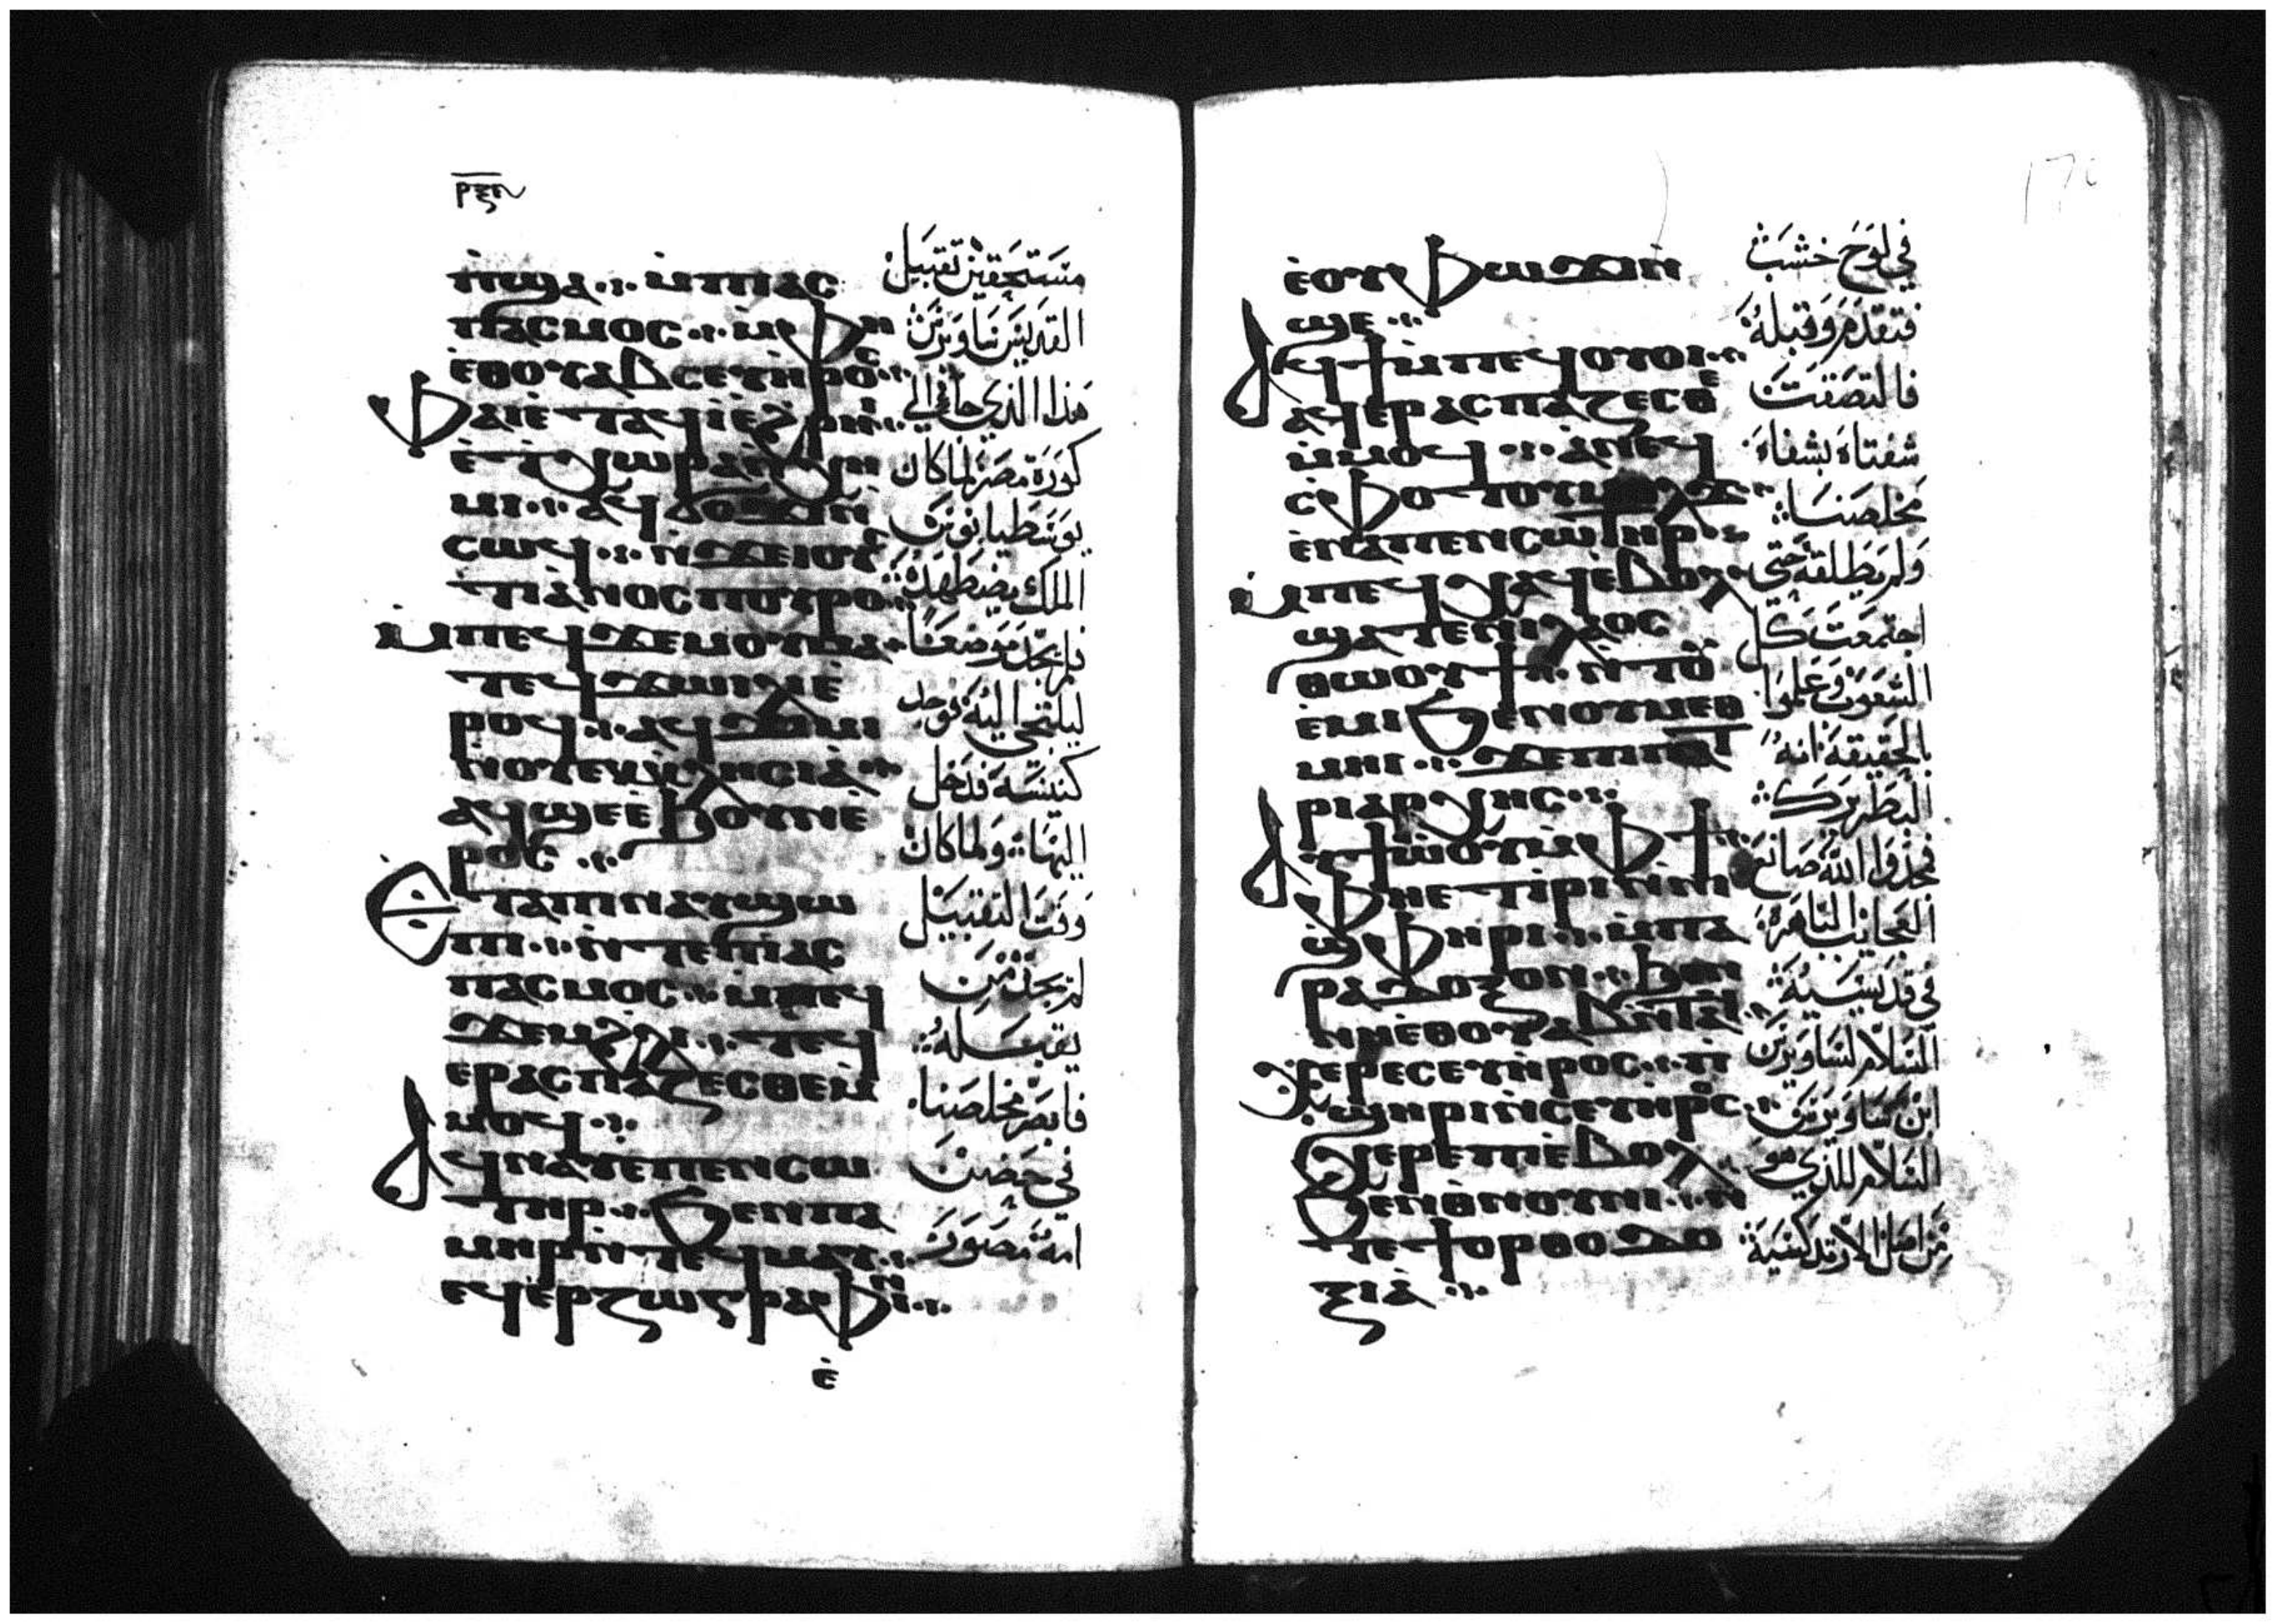 ⲣⲝⲏ
ⲙ̀ⲡϣⲁ ⲙ̀ⲡⲓⲁⲥ
ⲡⲁⲥⲙⲟⲥ ⲙ̀ⲫⲏ
ⲉ̀ⲑⲟⲩⲁⲃ ⲥⲉⲩⲏⲣⲟⲥ
ⲫⲁⲓ ⲉ̀ⲧⲁϥⲓ̀ ⲉ̀ϩⲣⲏⲓ
ⲉ̀ⲧⲭⲱⲣⲁ ⲛ̀ⲭⲏ
ⲙⲓ ⲁϥϭⲟϫⲓ ⲛ̀
ⲥⲱϥ ⲛ̀ϫⲉ ⲓⲟⲩⲥ
ⲧⲓⲁⲛⲟⲥ ⲡⲟⲩⲣⲟ
ⲙ̀ⲡⲉϥϫⲉⲙ ⲟⲩⲙⲁ
ⲧⲉϥϫⲱⲓⲗⲓ ⲉ̀
ⲣⲟϥ ⲁϥϫⲓⲙⲓ
ⲛ̀ⲟⲩⲉⲕⲕⲗⲏⲥⲓⲁ̀
ⲁϥϣⲉ ⲉ̀ϧⲟⲩⲛ ⲉ̀
ⲣⲟⲥ
ⲉ̀ⲧⲁ ⲡⲛⲁⲩ ϣⲱ
ⲡⲓ ⲛ̀ⲧⲉ ⲡⲓⲁⲥ
ⲡⲁⲥⲙⲟⲥ ⲙ̀ⲡⲉϥ
ϫⲉⲙ ϩⲗⲓ ⲧⲉϥ
ⲉⲣⲁⲥⲡⲁⲍⲉⲥⲑⲉ ⲙ̀
ⲙⲟϥ
ⲁϥⲛⲁⲩ ⲉ̀ⲡⲉⲛⲥⲱ
ⲧⲏⲣ ϧⲉⲛ ⲡⲁ
ⲙⲏⲣ ⲛ̀ⲧⲉϥⲙⲁⲩ
ⲉϥⲉⲣⲍⲱⲅⲣⲁⲫⲓⲛ
ⲉ̀
مستحقين تقبيل
القديس ساويرس
هذا الذي جا الي
كورة مصر لما كان
يوسطيانوس
الملك يضطهده
فلم يجد موضعا
ليلتجي اليه فوجد
كنيسه فدخل
اليها ولما كان
وقت التقبيل
لم يجد من
يقبله
فابصر مخلصنا
في حضن
امه مصور
ⲉ̀ⲟⲩⲫⲱϫⲓ ⲛ̀
ϣⲉ
ⲁϥϯ ⲙ̀ⲡⲉϥⲟⲩⲟⲓ
ⲁϥⲉⲣⲁⲥⲡⲁⲍⲉⲥⲑⲉ
ⲙ̀ⲙⲟϥ ⲁ̀ ⲛⲉϥ
ⲥ̀ⲫⲟⲧⲟⲩ ⲧⲱⲙⲓ
ⲉ̀ⲛⲁ ⲡⲉⲛⲥⲱⲧⲏⲣ
ⲙ̀ⲡⲉϥⲭⲁϥ ⲉ̀ⲃⲟⲗ
ϣⲁⲧⲉ ⲛⲓⲗⲁⲟⲥ
ⲑⲱⲟⲩϯ ⲛ̀ⲧⲟⲩ
ⲉ̀ⲙⲓ ϧⲉⲛ ⲟⲩⲙⲉⲑ
ⲙⲏⲓ ϫⲉ ⲡⲓⲡⲁⲧ
ⲣⲓⲁⲣⲭⲏⲥ
ⲁⲩϯⲱ̀ⲟⲩ ⲙ̀ⲫϯ
ⲫⲏ ⲉⲧⲓⲣⲓ ⲛ̀ⲛⲓ
ϣ̀ⲫⲏⲣⲓ ⲙ̀ⲡⲁ
ⲣⲁⲇⲟⲝⲟⲛ ϧⲉⲛ
ⲛⲏ ⲉ̀ⲑⲟⲩⲁⲃ ⲛ̀ⲧⲁϥ
ⲭⲉⲣⲉ ⲥⲉⲩⲏⲣⲟⲥ ⲡ̀
ϣⲏⲣⲓ ⲛ̀ⲥⲉⲩⲏⲣⲟⲥ
ⲭⲉⲣⲉ ⲡⲓⲉ̀ⲃⲟⲗ
ϧⲉⲛ ⲑ̀ⲛⲟⲩⲛⲓ ⲛ̀
ⲧⲉ ϯⲟⲣⲑⲟⲇⲟ
ⲝⲓⲁ̀
في لوح خشب
فتقدم وقبله
فالتصقت
شفتاه بشفاه
مخلصنا
ولم يطلقه حتى
اجتمعت كل
الشعوب وعلموا
بالحقيقة انه
البطريرك
فمجدوا الله صانع
العجايب الباهرة
في قديسيه
السلام لساويرس
ابن ساويرس
السلام للذي هو
من اصل الارتدكسية